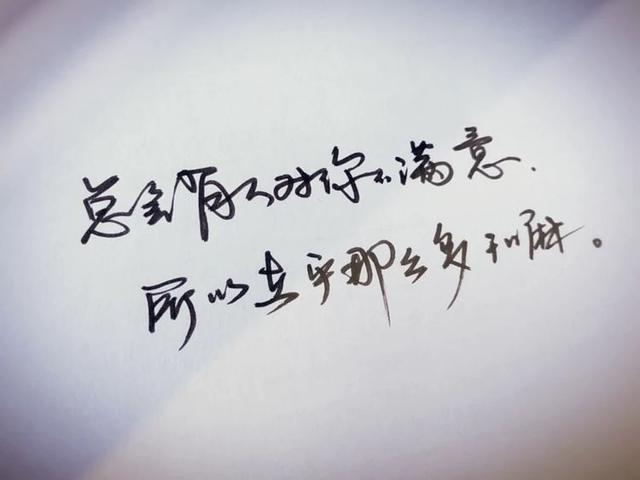 总会有人对你不满意.
所以在乎那么多干嘛。